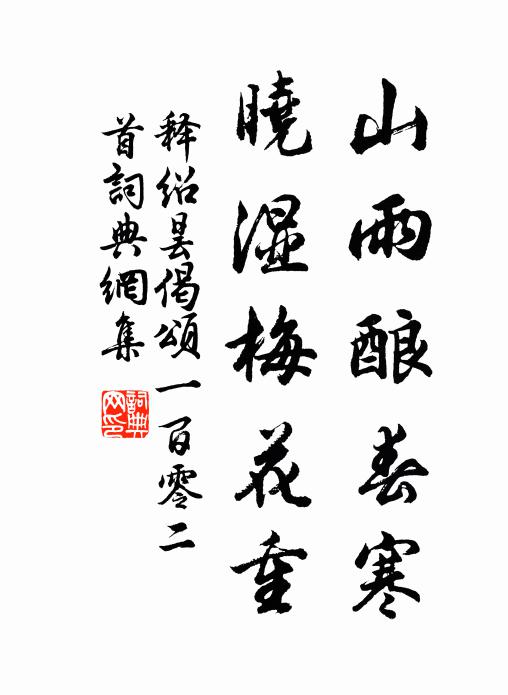 山雨酿春寒
曉湿梅花重
释绍昙偈頌一百零二
首詞典網集
詞典网印